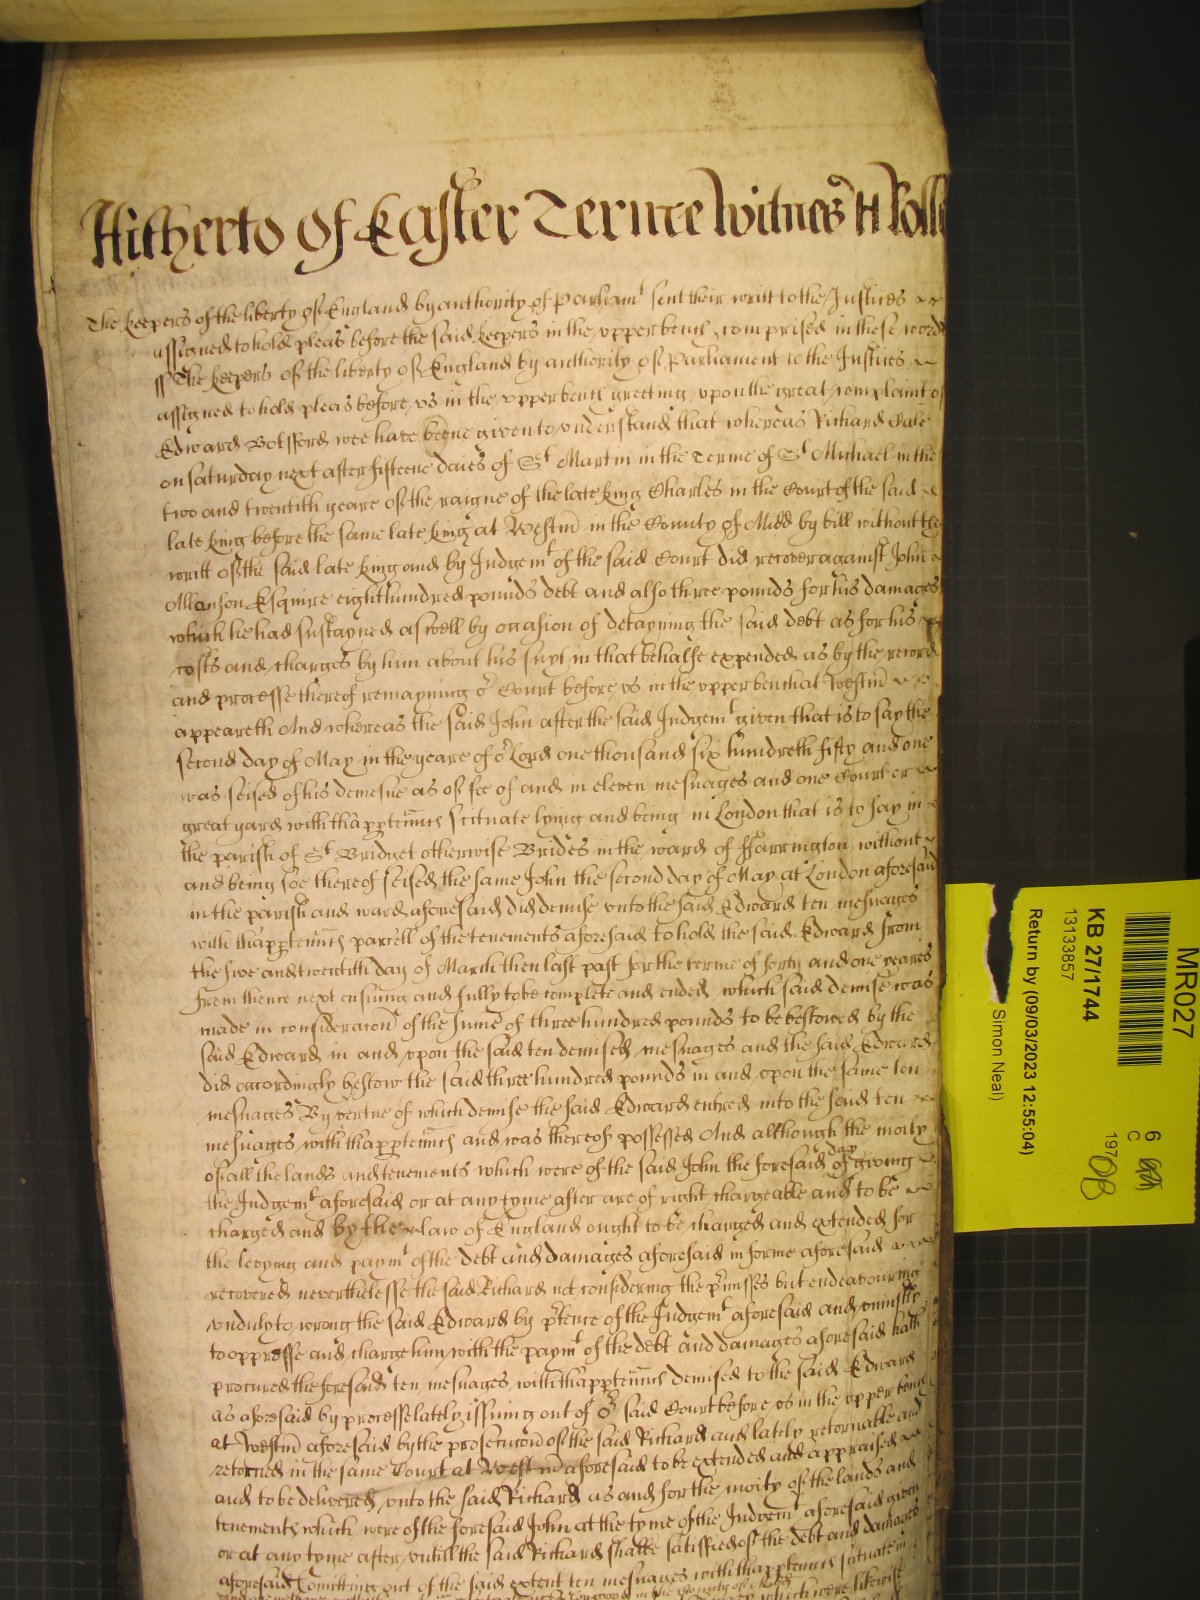 Hitherto of Easter Terme Witnes H Rolle
The keepers of the liberty of England by authority of Parliamt sent their writt to the Justices
assigned to hold pleas before the said keepers in the upper bench comprised in these words
ss The keepers of the liberty of England by authority of Parliament to the Justices
assigned to hold pleas before us in the upper bench greeting upon the great complaint of
Edward Botsford wee have beene given to understand that whereas Richard Dale
on saturday next after fifteene daies of St Martin in the Terme of St Michael in the
two and twentith yeare of the raigne of the late king Charles in the Court of the said
late king before the same late king at Westm in the County of Midd by bill without the
writt of the said late king and by Judgemt of the said Court did recover against John
Allanson Esquire eight hundred pounds debt and also three pounds for his damages
which he had sustayned aswell by occasion of detayning the said debt as for his
costs and charges by him about his suyt in that behalfe expended as by the record
and processe thereof remayning or Court before us in the upper bench at Westm
appeareth And whereas the said John after the said Judgemt given that is to say the
second day of May in the yeare of or Lord one thousand six hundreth fifty and one
was seised of his demesne as of fee of and in eleven mesuages and one Court or
great yard with thapptennces scituate lying and being in London that is to say in
the parish of St Bridget otherwise Brides in the ward of ffarrington without
and being soe thereof seised the same John the second day of May at London aforesaid
in the parish and ward aforesaid did demise unto the said Edward ten mesuages
with thapptennces parcell of the tenements aforesaid to hold the said Edward from
the five and twentith day of March then last past for the terme of forty and one yeares
from thence next ensuing and fully to be complete and ended which said demise was
made in consideracon of the sume of three hundred pounds to be bestowed by the
said Edward in and upon the said ten demised mesuages and the said Edward
did accordingly bestow the said three hundred pounds in and upon the same ten
mesuages By vertue of which demise the said Edward entred into the said ten
mesuages with thapptennces and was thereof possessed And allthough the moity
of all the lands and tenements which were of the said John the foresaid day of giving
the Judgemt aforesaid or at any tyme after are of right chargeable and to be
charged and by the law of England ought to be charged and extended for
the levying and paymt of the debt and damages aforesaid in forme aforesaid
recovered neverthelesse the said Richard not considering the pmisses but endeavouring
unduly to wrong the said Edward by ptence of the Judgemt aforesaid and uniustly
to oppresse and charge him with the paymt of the debt and damages aforesaid hath
procured the foresaid ten mesuages with thapptennces demised to the said Edward
as aforesaid by processe lately issuing out of or said Court before us in the upper bench
at Westm aforesaid by the prosecucon of the said Richard and lately retornable and
retorned in the same Court at Westm aforesaid to be extended and appraised
and to be delivered unto the said Richard as and for the moity of the lands and
tenements which were of the foresaid John at the tyme of the Judgemt aforesaid given
or at any tyme after untill the said Richard shalbe satisfied of the debt and damages
aforesaid Comitting out of the said extent ten mesuages with thapptennces scituate in
which were likewise
MR027
6
C
197
KB 27/1744
13133857
Return by (09/03/2023 12:55:04)
Simon Neal)